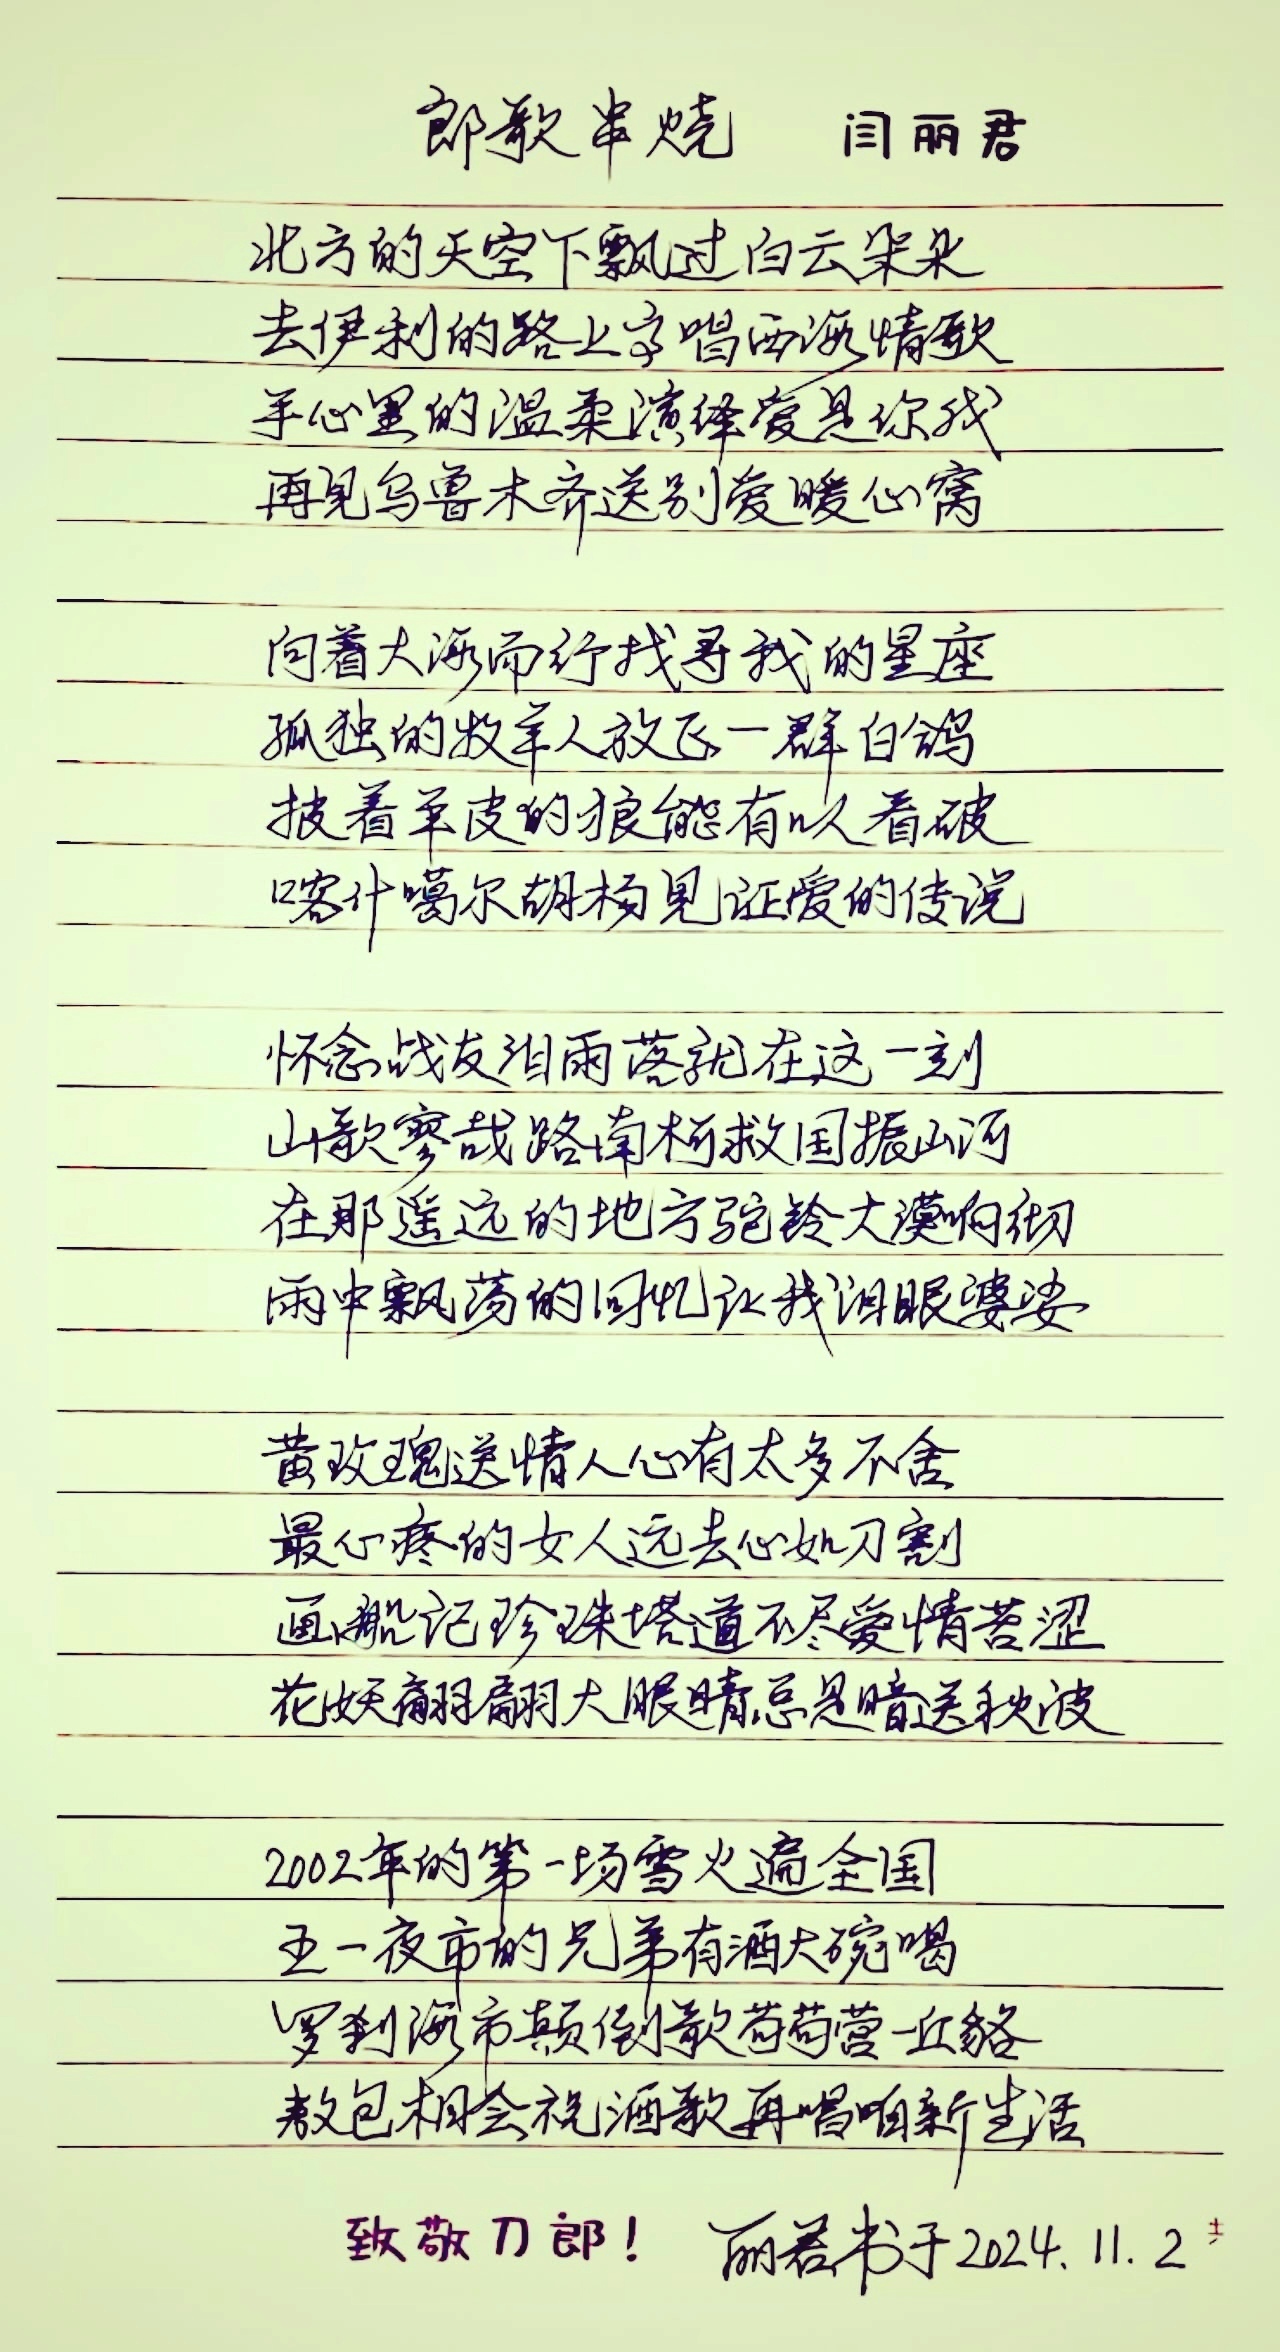 郎歌串烧 闫丽君
北方的天空下飘过白云朵朵
去伊利的路上字唱西海情歌
手心里的温柔演绎爱是你我
再见乌鲁木齐送别爱暖心窝
向着大海而行找寻我的星座
孤独的牧羊人放飞一群白鸽
披着羊皮的狼能有以看破
喀什噶尔胡杨见证爱的传说
怀念战友泪雨落就在这一刻
山歌寥哉路南柯救国振山河
在那遥远的地方驼铃大漠响彻
雨中飘荡的回忆让我泪眼婆娑
黄玫瑰送情人心有太多不舍
最心疼的女人远去心如刀割
画船记珍珠塔道不尽爱情苦涩
花妖翩翩大眼睛总是暗送秋波
2002年的第一场雪火遍全国
五一夜市的兄弟有酒大碗喝
罗刹海市颠倒歌苟苟营一丘貉
敖包相会祝酒歌再唱咱新生活
致敬刀郎！ 丽君书于2024.11.2